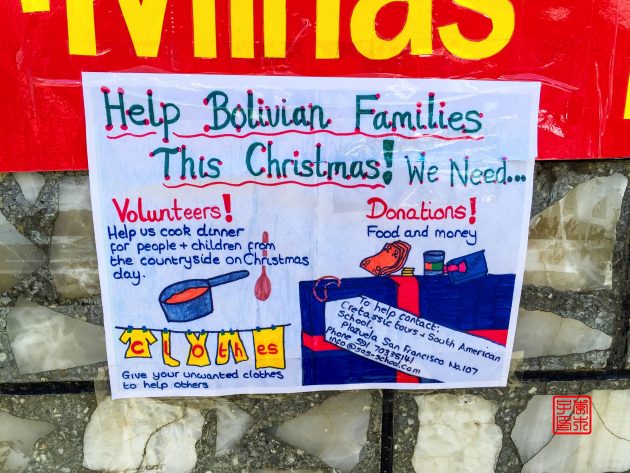 Minas
Help Bolivian Families
This Christmas! We Need...
Volunteers!
Help us cook dinner
for people + children from
the countryside on Christmas
day.
Clothes
Give your unwanted clothes
to help others
Donations!
Food and money
To help contact:
Cretassic tours + South American
School,
Plazuela San Francisco No.107
Phone 591
info@sas-school.com